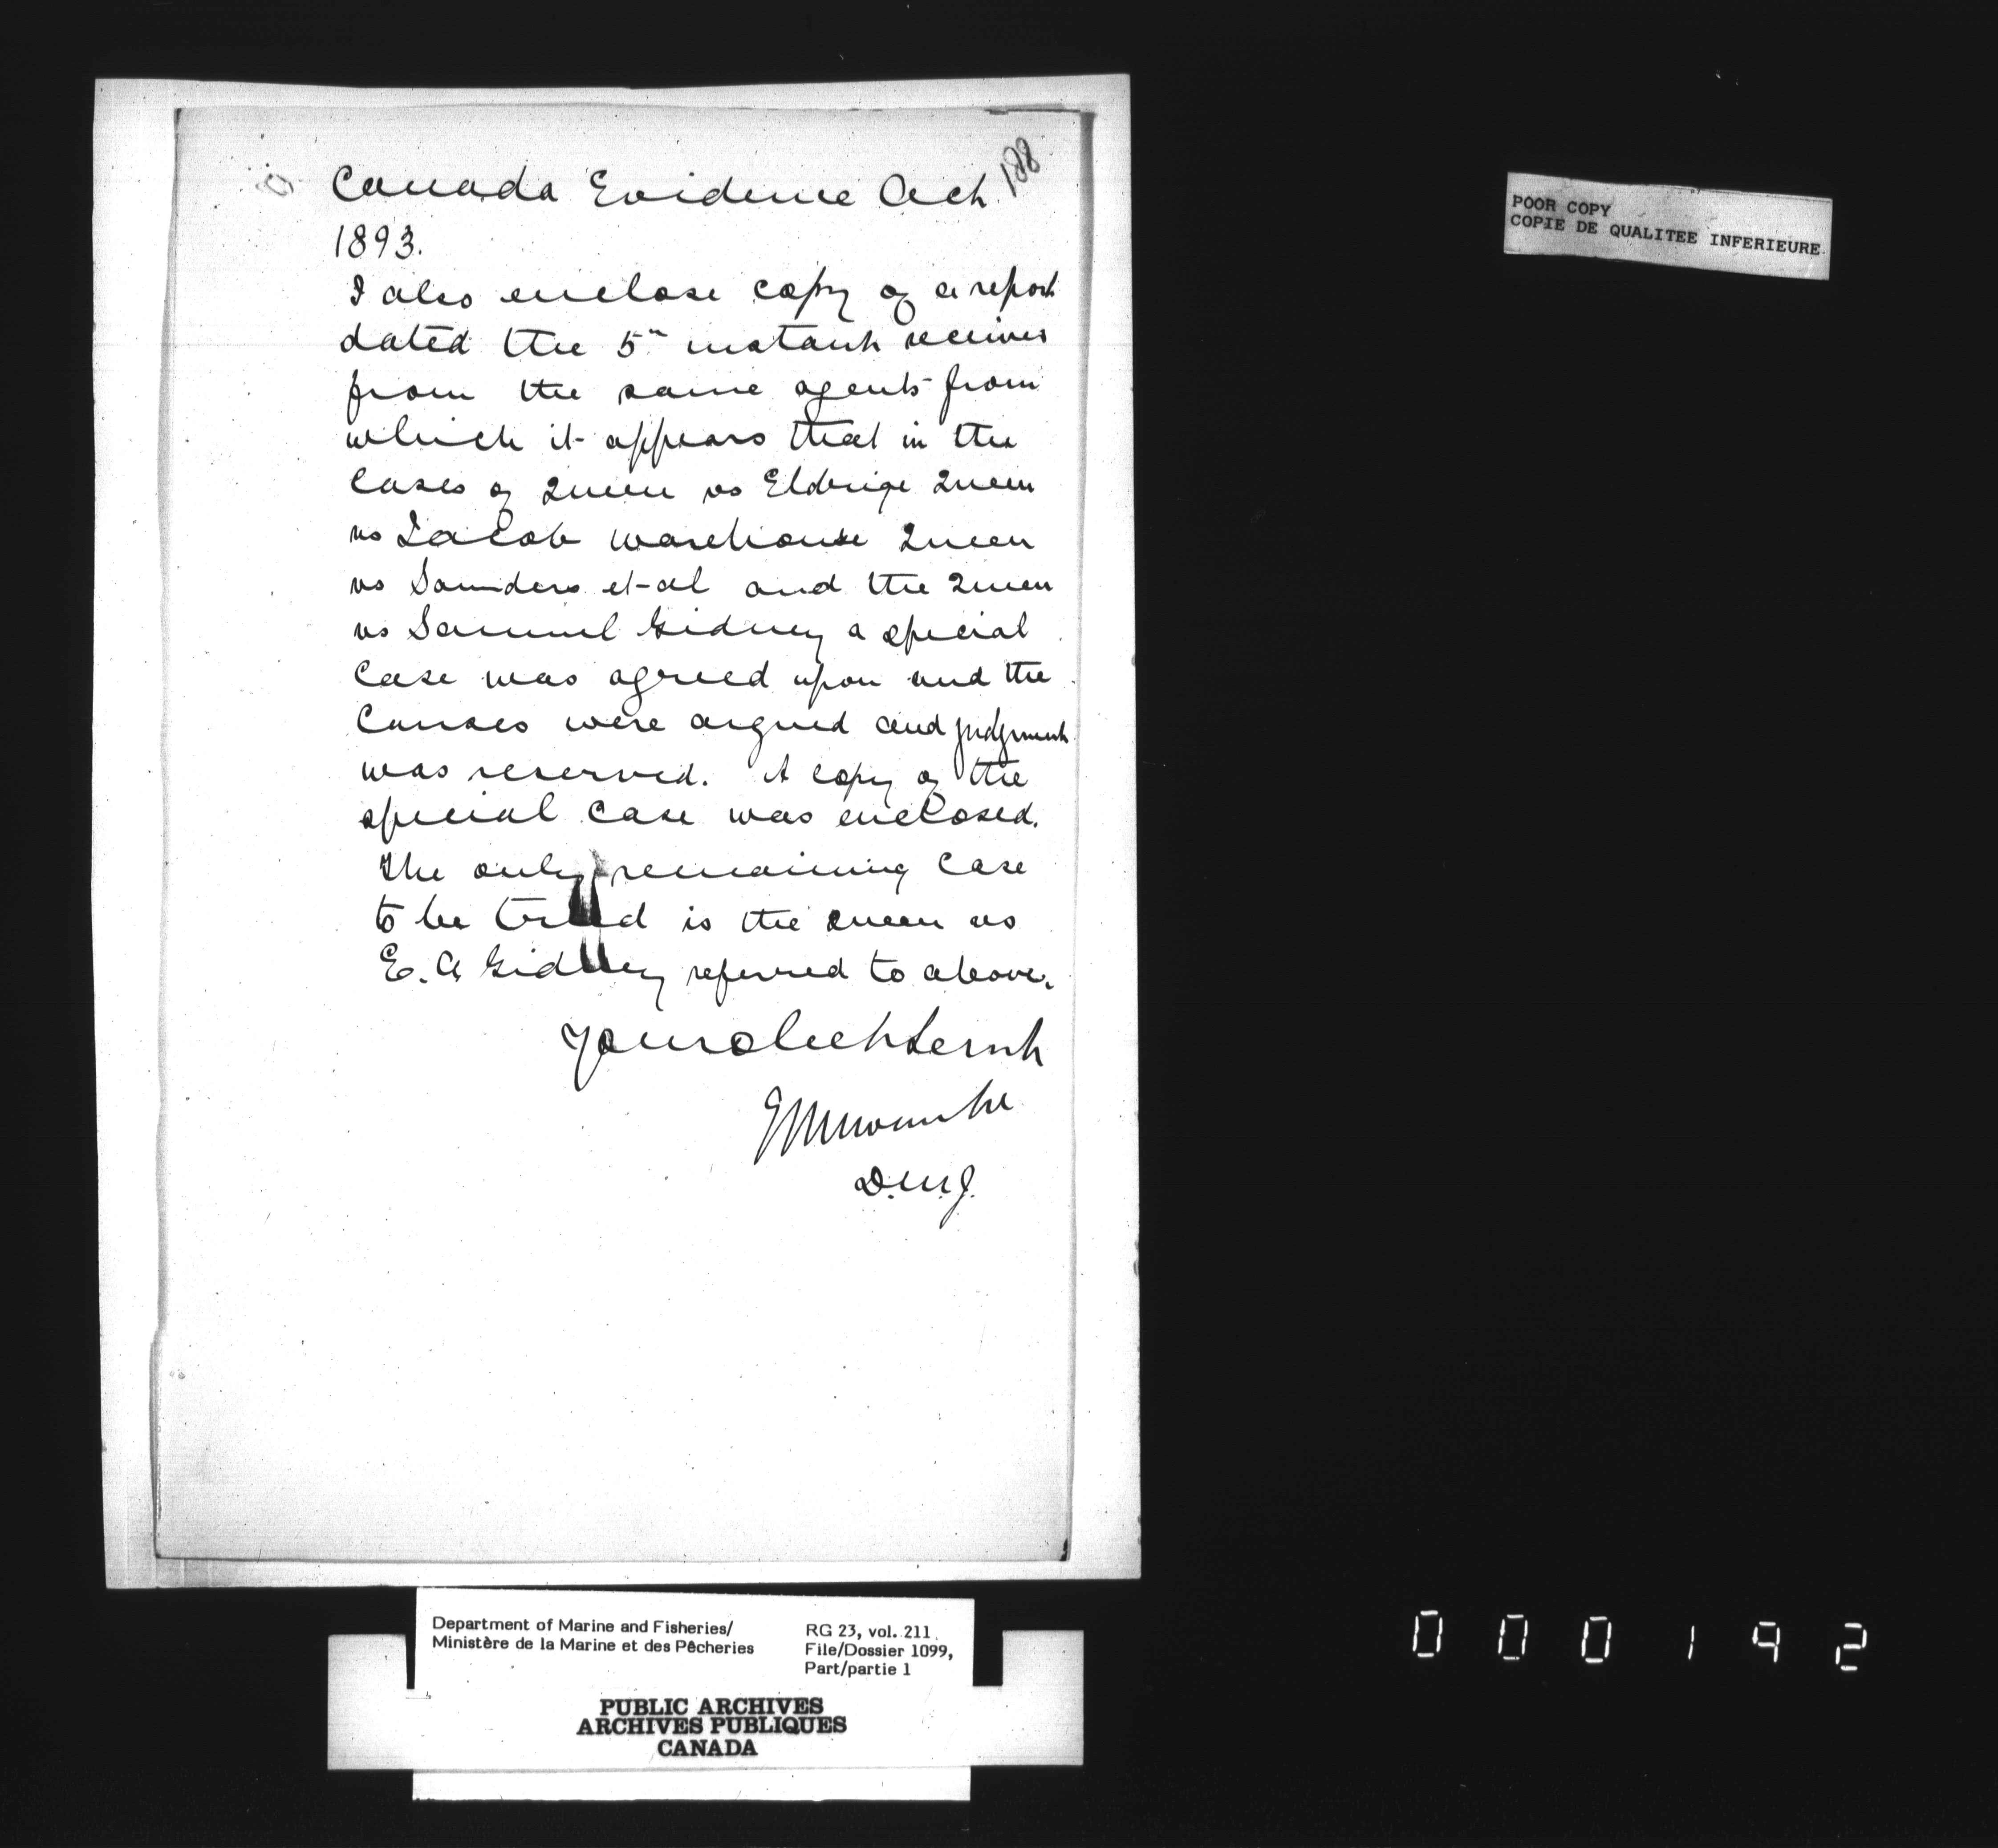 188
Canada Evidence Act
1893.
I also enclose copy of a report
dated the 5th instant received
from the same agents from
which it appears that in the
cases of Queen vs Eldrige Queen
vs Jacob Warehouse Queen
vs Saunders et al and the Queen
vs Samuel Gidney a special
case was agreed upon and the
causes were argued and judgment
was reserved. A copy of the
special case was enclosed.
The only remaining case
to be tried is the Queen vs
E. A Gidney referred to above.
Your obedt Servt
E L Newcombe
D.M.J.
POOR COPY
COPIE DE QUALITEE INFERIEURE
Department of Marine and Fisheries/
Ministère de la Marine et des Pêcheries
RG 23, vol. 211,
File/Dossier 1099,
Part/partie 1
PUBLIC ARCHIVES
ARCHIVES PUBLIQUES
CANADA
000192